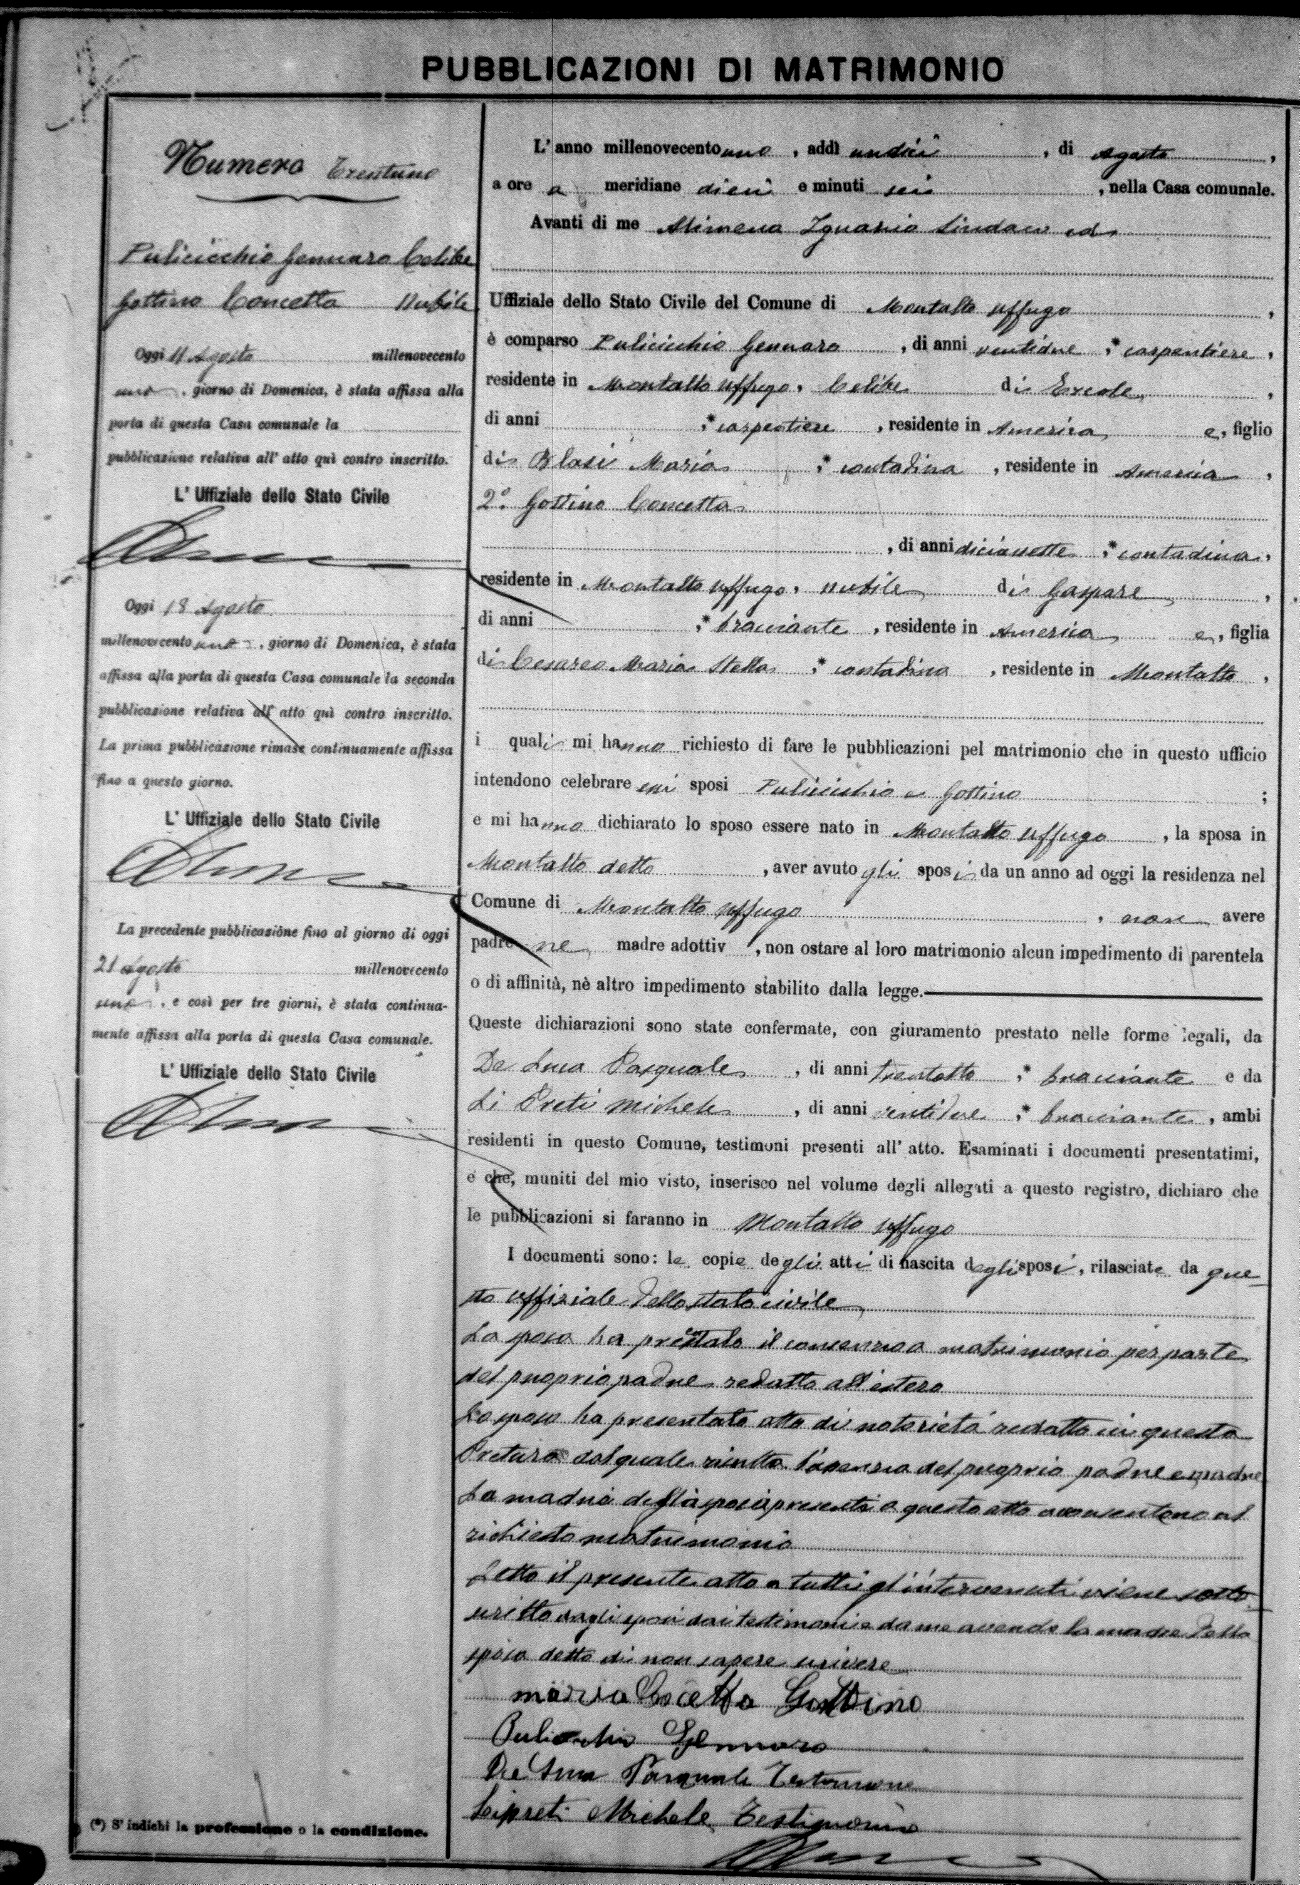 PUBBLICAZIONI DI MATRIMONIO
Numero Trentuno
Pulicicchio Gennaro Celibe
Gottino Concetta Nubile
Oggi 11 Agosto millenovecento
uno, giorno di Domenica, è stata affissa alla
porta di questa Casa comunale la
pubblicazione relativa all' atto quì contro inscritto.
L' Uffiziale dello Stato Civile
Oggi 18 Agosto
millenovecento uno, giorno di Domenica, è stata
affissa alla porta di questa Casa comunale la seconda
pubblicazione relativa all' atto quì contro inscritto.
La prima pubblicazione rimase continuamente affissa
fino a questo giorno.
L' Uffiziale dello Stato Civile
La precedente pubblicazione fino al giorno di oggi
21 Agosto millenovecento
uno, e così per tre giorni, è stata continua-
mente affissa alla porta di questa Casa comunale.
L' Uffiziale dello Stato Civile
(*) S' indichi la professione o la condizione.
L' anno millenovecento uno, addì undici, di Agosto,
a ore a meridiane dieci e minuti sei, nella Casa comunale.
Avanti di me Alimena Ignazio Sindaco ed
Uffiziale dello Stato Civile del Comune di Montalto Uffugo,
è comparso Pulicicchio Gennaro, di anni ventidue, * carpentiere,
residente in Montalto Uffugo, Celibe di Ercole,
di anni , * carpentiere, residente in America e, figlio
di Blasi Maria, * contadina, residente in America,
2° Gottino Concetta
, di anni diciassette, * contadina,
residente in Montalto Uffugo, nubile di Gaspare,
di anni , * bracciante, residente in America e, figlia
di Cesareo Maria Stella, * contadina, residente in Montalto,
i quali mi hanno richiesto di fare le pubblicazioni pel matrimonio che in questo ufficio
intendono celebrare essi sposi Pulicicchio e Gottino;
e mi hanno dichiarato lo sposo essere nato in Montalto Uffugo, la sposa in
Montalto detto, aver avuto gli sposi da un anno ad oggi la residenza nel
Comune di Montalto Uffugo, non avere
padre nè madre adottiv , non ostare al loro matrimonio alcun impedimento di parentela
o di affinità, nè altro impedimento stabilito dalla legge.
Queste dichiarazioni sono state confermate, con giuramento prestato nelle forme legali, da
De Luca Pasquale, di anni trentotto, * bracciante e da
Li Preti Michele, di anni ventidue, * bracciante, ambi
residenti in questo Comune, testimoni presenti all' atto. Esaminati i documenti presentatimi,
e che, muniti del mio visto, inserisco nel volume degli allegati a questo registro, dichiaro che
le pubblicazioni si faranno in Montalto Uffugo
I documenti sono: le copie degli atti di nascita degli sposi, rilasciate da que
sto uffiziale dello stato civile
La sposa ha prestato il consenso a matrimonio per parte
del proprio padre redatto all'estero
Lo sposo ha presentato atto di notorietà redatto in questa
Pretura dal quale risulta l'assenza del proprio padre e madre
La madre della sposa presente a questo atto acconsentono al
richiesto matrimonio
Letto il presente atto a tutti gl'intervenuti viene sotto
scritto dagli sposi dai testimoni e da me avendo la madre della
sposa detto di non sapere scrivere
Gottino
Pulicicchio Gennaro
De Luca Pasquale Testimone
Lipreti Michele Testimonio